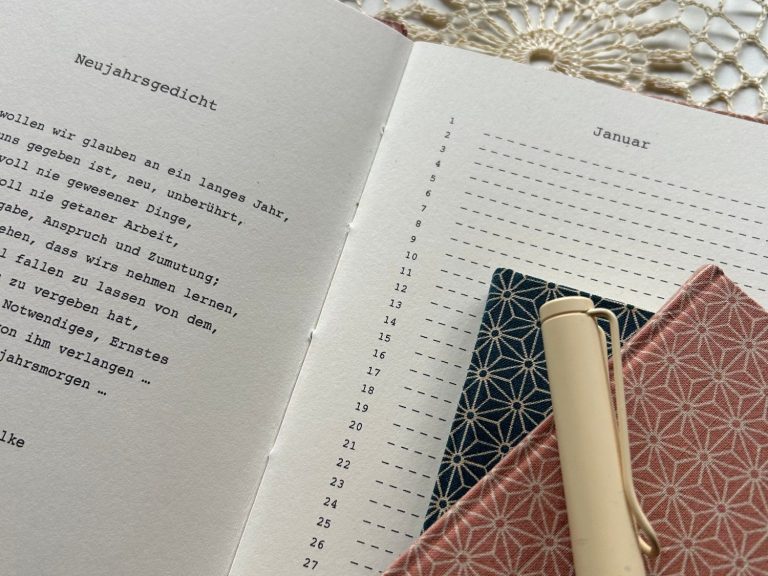 Neujahrsgedicht
wollen wir glauben an ein langes Jahr,
uns gegeben ist, neu, unberührt,
voll nie gewesener Dinge,
voll nie getaner Arbeit,
gabe, Anspruch und Zumutung;
ehen, dass wirs nehmen lernen,
l fallen zu lassen von dem,
zu vergeben hat,
Notwendiges, Ernstes
von ihm verlangen …
jahrsmorgen …
lke
Januar
1
2
3
4
5
6
7
8
9
10
11
12
13
14
15
16
17
18
19
20
21
22
23
24
25
26
27